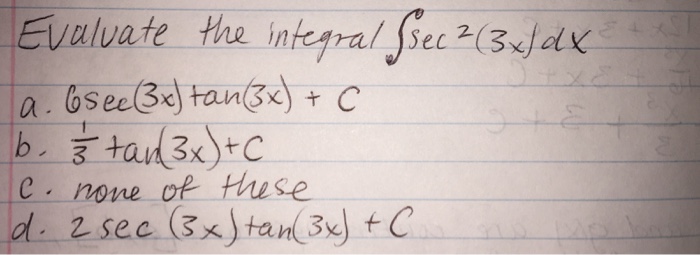 Evaluate the integral ∫sec²(3x)dx
a. 6sec(3x)tan(3x) + C
b. 1/3 tan(3x)+C
c. none of these
d. 2 sec (3x)tan(3x) + C